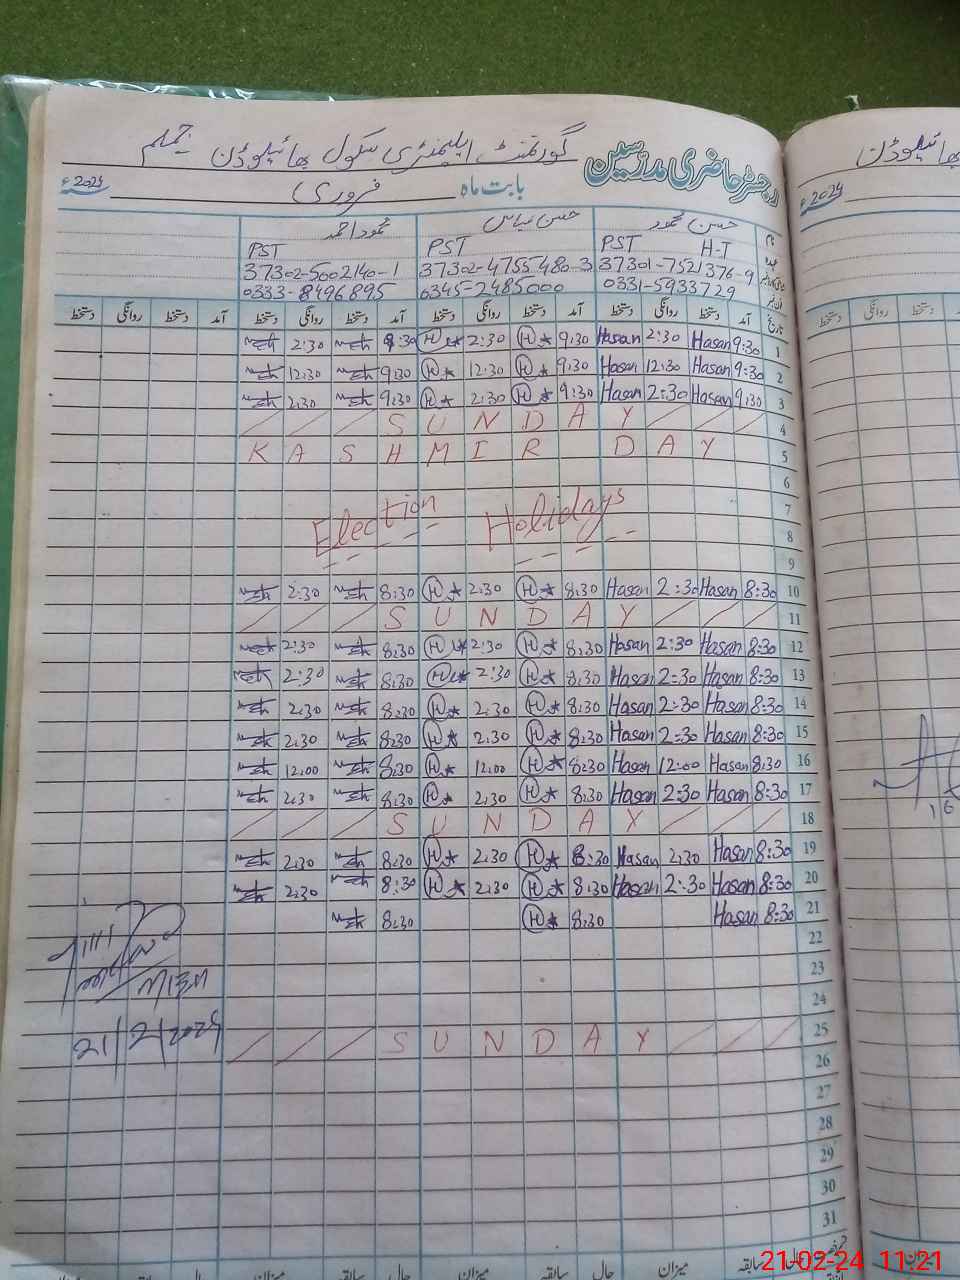 گورنمنٹ ایلیمنٹری سکول بھائیلوڈن جہلم
رجسٹر حاضری مدرسین
بابت ماہ فروری 2024ء
حسن محمود حسن عباس محمود احمد
PST H-T PST PST
37301-7521376-9 37302-4755480-3 37302-5002140-1
0331-5933729 0345-2485000 0333-8496895
تاریخ آمد دستخط روانگی دستخط آمد دستخط روانگی دستخط آمد دستخط روانگی دستخط آمد دستخط روانگی دستخط
1 9:30 Hasan 2:30 Hasan 9:30 H 2:30 H 9:30 2:30
2 9:30 Hasan 12:30 Hasan 9:30 H 12:30 H 9:30 12:30
3 9:30 Hasan 2:30 Hasan 9:30 H 2:30 H 9:30 2:30
4 SUNDAY
5 KASHMIR DAY
6
7
Election Holidays
8
9
10 8:30 Hasan 2:30 Hasan 8:30 H 2:30 H 8:30 2:30
11 SUNDAY
12 8:30 Hasan 2:30 Hasan 8:30 H 2:30 H 8:30 2:30
13 8:30 Hasan 2:30 Hasan 8:30 H 2:30 H 8:30 2:30
14 8:30 Hasan 2:30 Hasan 8:30 H 2:30 H 8:30 2:30
15 8:30 Hasan 2:30 Hasan 8:30 H 2:30 H 8:30 2:30
16 8:30 Hasan 12:00 Hasan 8:30 H 12:00 H 8:30 12:00
17 8:30 Hasan 2:30 Hasan 8:30 H 2:30 H 8:30 2:30
18 SUNDAY
19 8:30 Hasan 2:30 Hasan 8:30 H 2:30 H 8:30 2:30
20 8:30 Hasan 2:30 Hasan 8:30 H 2:30 H 8:30 2:30
21 8:30 Hasan 8:30 H 8:30
22
23
24
25 SUNDAY
21/2/2024
26
27
28
29
30
31
میزان حال سابقہ میزان حال سابقہ میزان حال سابقہ
بھائیلوڈن
2024ء
دستخط روانگی دستخط
16
میزان
21-02-24 11:21